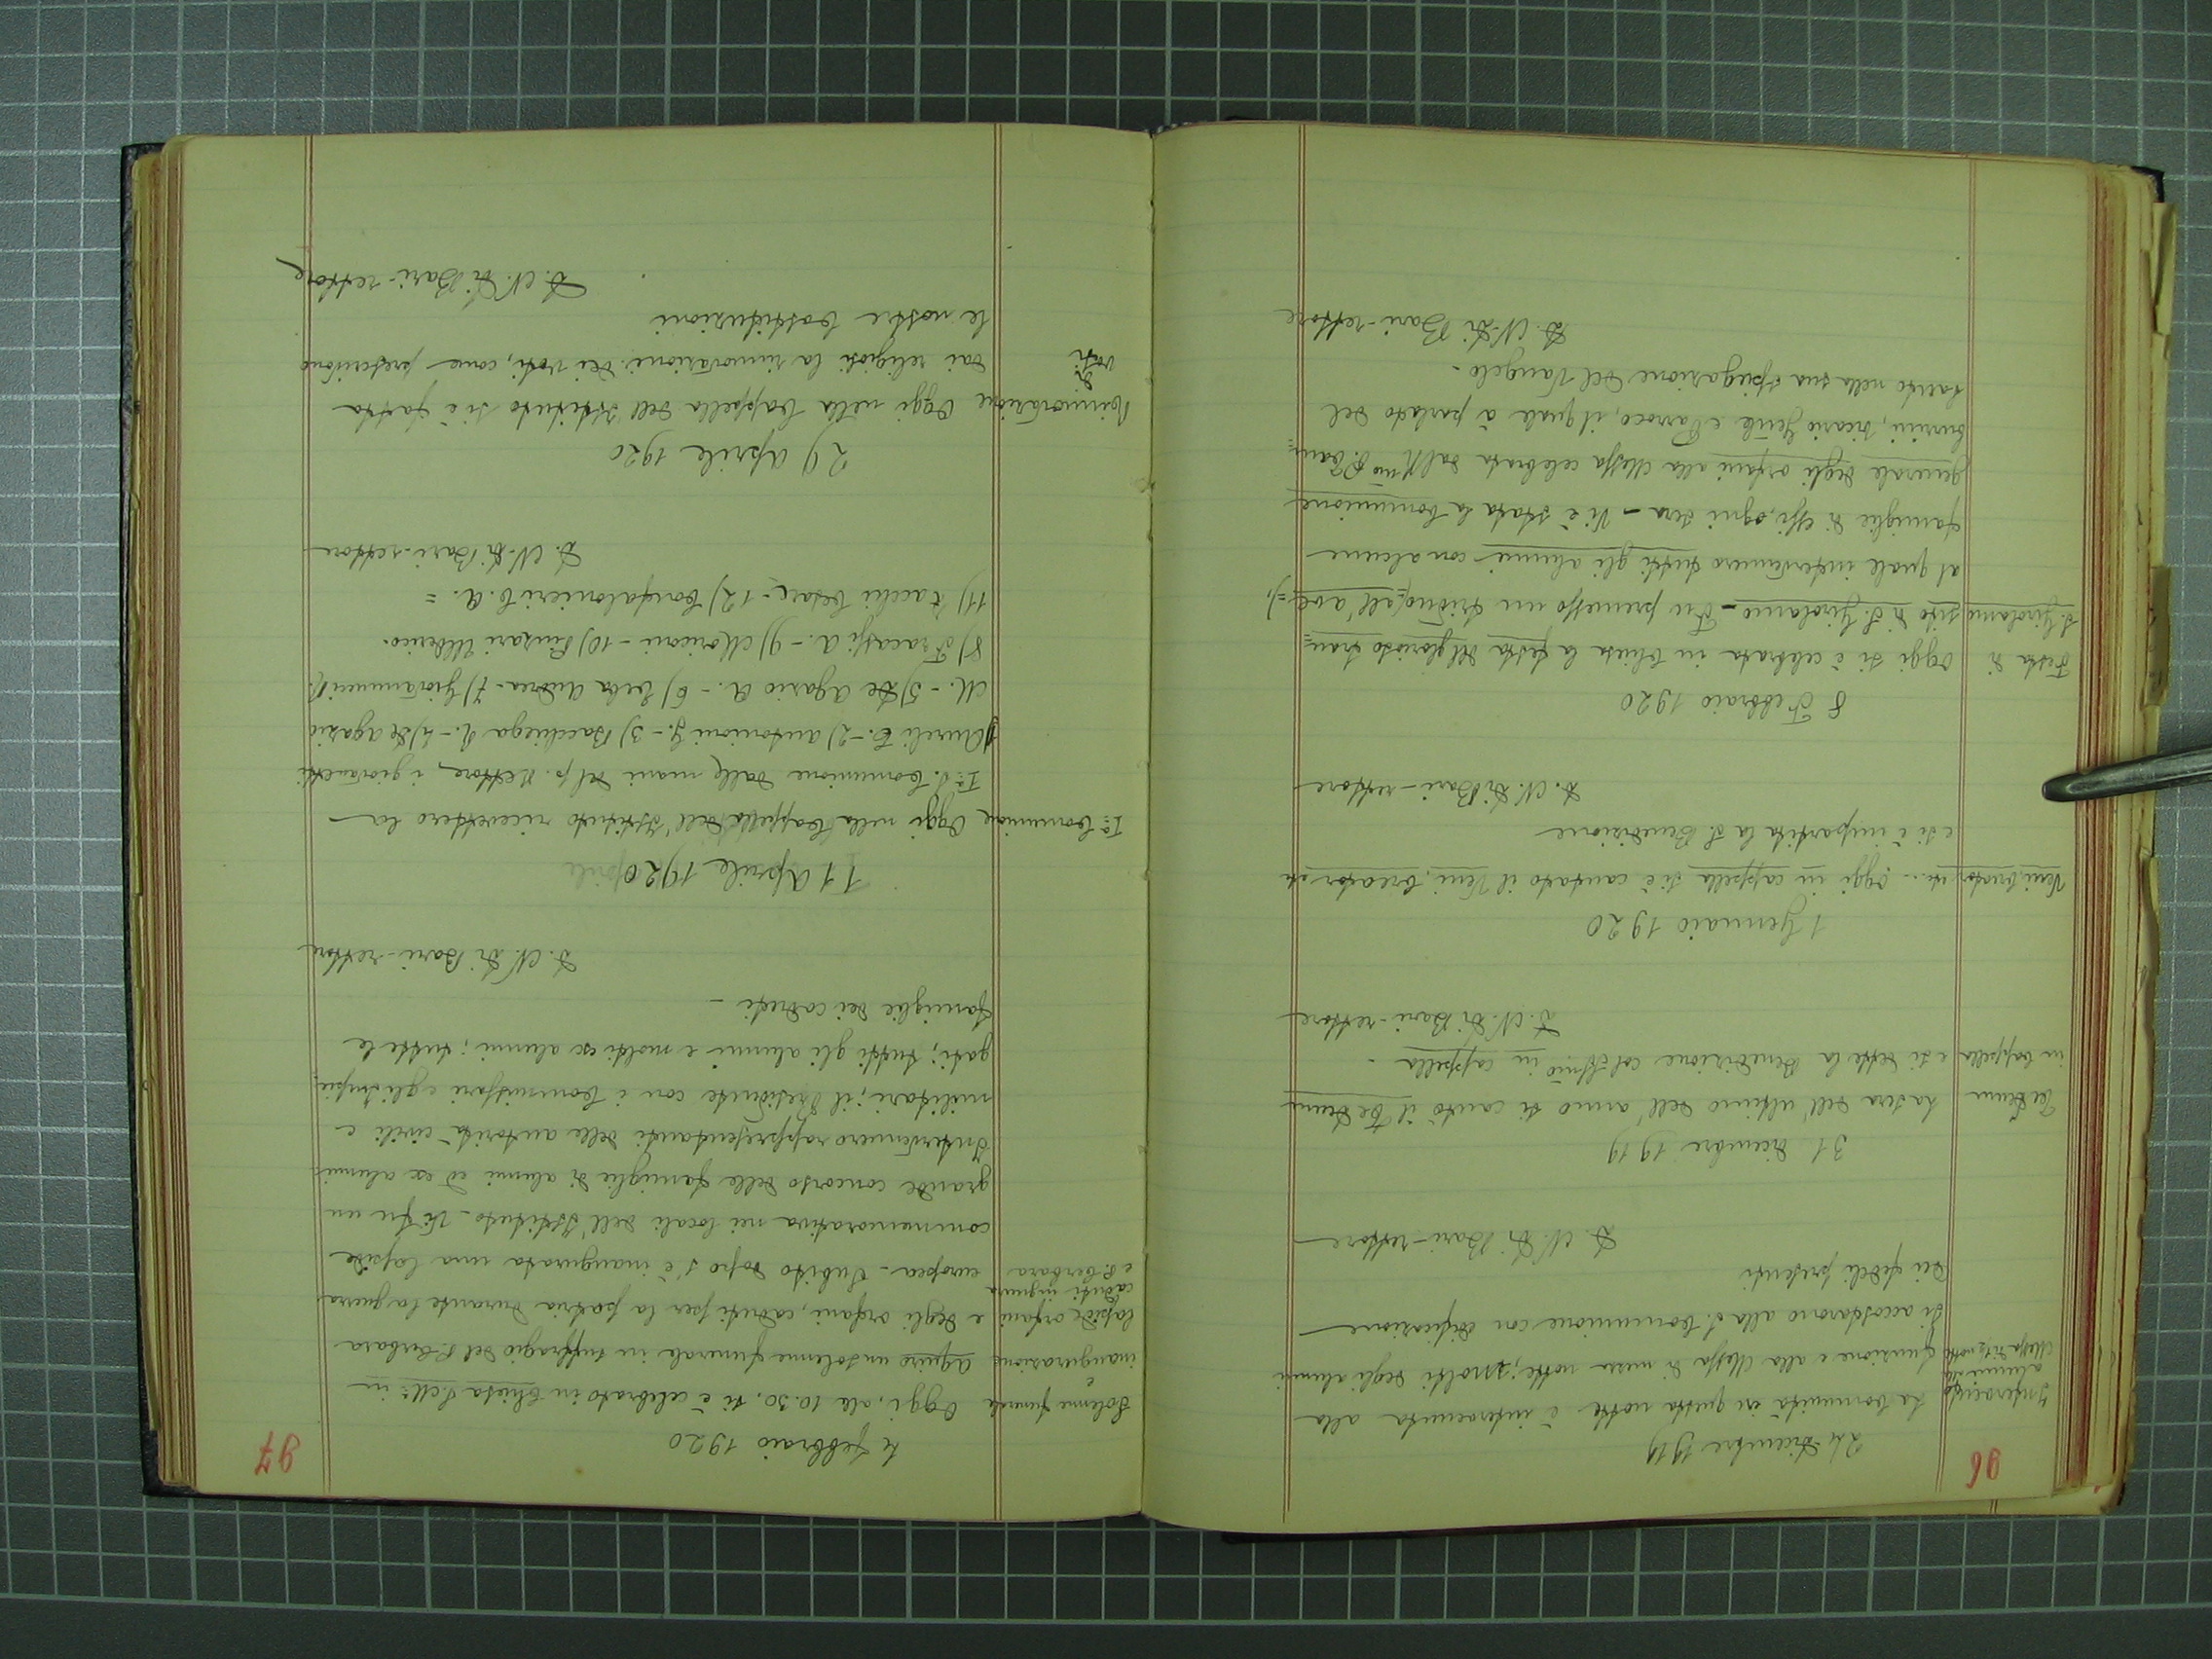 96
24 Dicembre 1919
Intervento
alunni alla
Messa di 1/2 notte
La Comunità in questa notte è intervenuta alla
funzione e alla Messa di mezza notte; molti degli alunni
si accostarono alla S. Comunione con edificazione
dei fedeli presenti
D. N. Di Bari - rettore
31 Dicembre 1919
Te Deum
in Cappella
La sera dell'ultimo dell'anno si cantò il Te Deum
e si dette la Benedizione col SSmo in cappella -
D. N. Di Bari - rettore
1 Gennaio 1920
Veni, Creator etc...
Oggi in cappella si è cantato il Veni, Creator etc
e si è impartita la S. Benedizione
D. N. Di Bari - rettore
8 Febbraio 1920
Festa di
S. Girolamo
Oggi si è celebrata in Chiesa la festa del glorioso tran=
sito di S. Girolamo - Fu premesso un triduo, (all'Ave=),
al quale intervennero tutti gli alunni con alcune
famiglie di essi, ogni sera - Vi è stata la Comunione
generale degli orfani alla Messa celebrata dal
, vicario Gnle e Parroco, il quale à parlato del
Santo nella sua spiegazione del Vangelo -
D. N. Di Bari - rettore
97
4 febbraio 1920
Solenne funerale
e
inaugurazione
lapide orfani
caduti in guerra
e P. Cerbara
Oggi, alle 10.30, si è celebrato in Chiesa S. M. in
Aquiro un solenne funerale in suffragio del P. Cerbara
e degli orfani, caduti per la patria durante la guerra
europea - Subito dopo s'è inaugurata una lapide
commemorativa nei locali dell'Istituto - Vi fu un
grande concorso delle famiglie di alunni ed ex alunni
Intervennero rappresentanti delle autorità civili e
militari; il Presidente con i Commissari e gli Impie=
gati; tutti gli alunni e molti ex alunni; tutte le
famiglie dei caduti -
D. N. Di Bari - rettore
11 Aprile 1920
Ia Comunione
Oggi nella Cappella dell'Istituto ricevettero la
Ia S. Comunione dalle mani del p. Rettore, i giovanetti
1) Aureli C. - 2) Antonioni G. - 3) Bacchiega A. - 4) De Agazio
M. - 5) De Agazio A. - 6) Andrea - 7) Giovannucci
8) Fracassi A. - 9) Moriconi - 10) Pinzari Uderico.
11) Racchi Cesare - 12) Confalonieri C. A. =
D. N. Di Bari - rettore
29 Aprile 1920
Rinnovazione
di
voti
Oggi nella Cappella dell'Istituto si è fatta
dai religiosi la rinnovazione dei voti, come prescrivono
le nostre Costituzioni
D. N. Di Bari - rettore